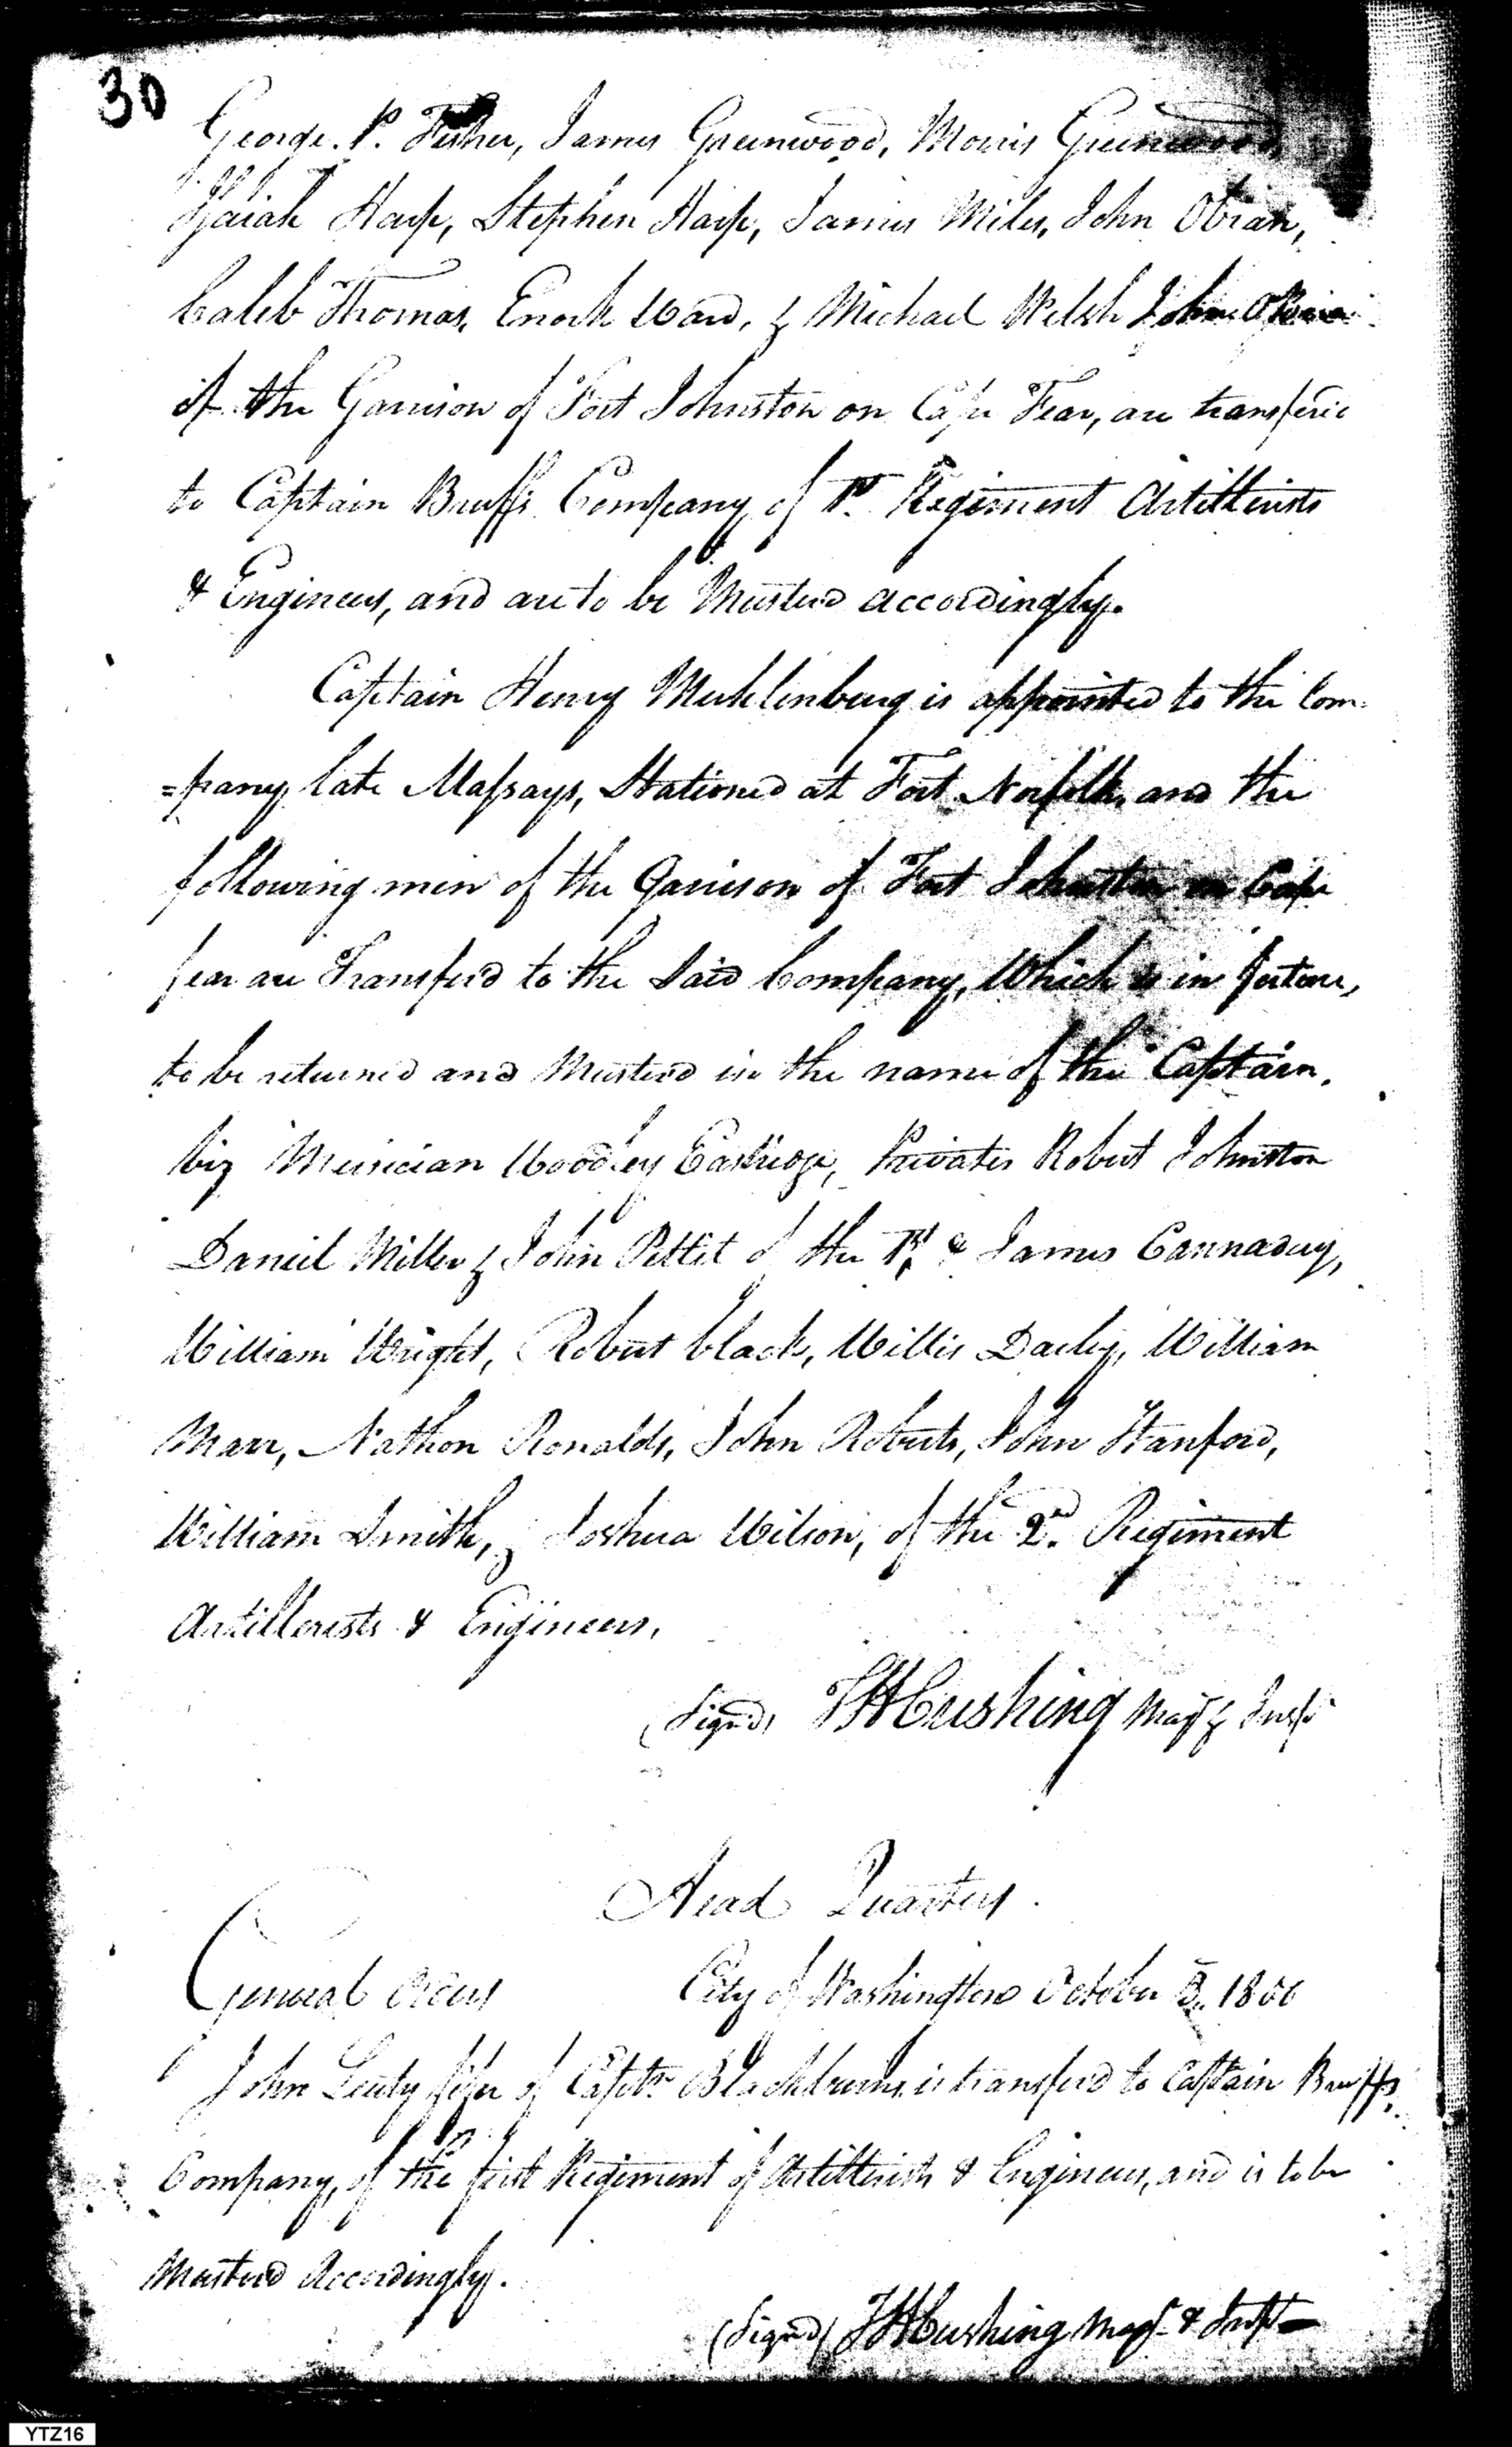 30
George. P. Fisher, James Greenwood, Morris Greenwood,
Isaiah Harp, Stephen Harp, James Miles, John Obrian,
Caleb Thomas, Enoch Ward, & Michael Welsh John
of the Garrison of Fort Johnston on Cape Fear, are transferd
to Captain Bruffs Company of 1st. Regiment Artillerists
& Engineers, and are to be Musterd accordingly.
Captain Henry Muhlenburg is appointed to the Com-
=pany late Massays, Stationed at Fort Norfolk, and the
following men of the Garrison of Fort Johnston on Cape
fear are Transferd to the Said Company, Which is in future,
to be returned and Musterd in the name of the Captain.
Viz Musician Woodley Privates Robert Johnston
Daniel Miller & John Pettit of the 1st. & James Cannaduy,
William Wright, Robert black, Willis Dailey, William
Marr, Nathon Ronalds, John Roberts, John Stanford,
William Smith, & Joshua Wilson, of the 2nd. Regiment
Artillerists & Engineers,
(Signed) THCushing Majr & Inspr
Head Quarters.
General Orders City of Washington October 3. 1800
John fifer of Captn Blackburns is transferd to Captain Bruffs,
Company, of the first Regiment of Artillerists & Engineers, and is to be
Musterd Accordingly.
(Signed) THCushing Majr & Inspt
YTZ16